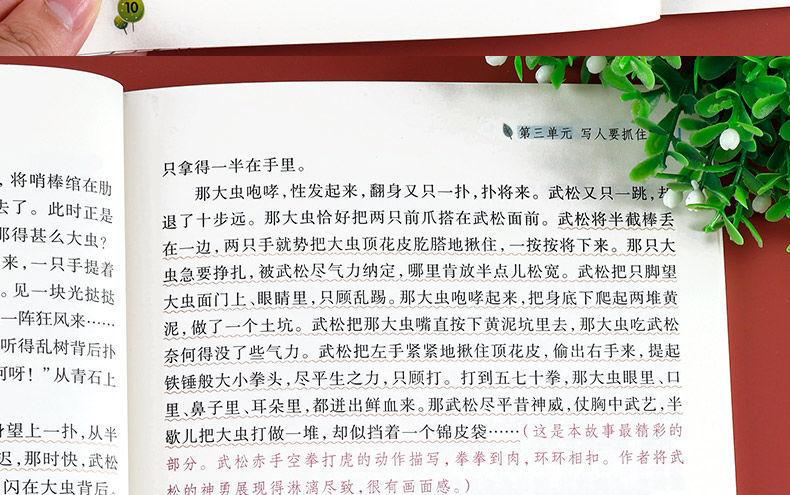 10
，将哨棒绾在肋
去了。此时正是
那得甚么大虫？
来，一只手提着
。见一块光挞挞
一阵狂风来……
听得乱树背后扑
呵呀！”从青石上
望上一扑，从半
迟，那时快，武松
闪在大虫背后。
第三单元 写人要抓住
只拿得一半在手里。
那大虫咆哮，性发起来，翻身又只一扑，扑将来。武松又只一跳，却
退了十步远。那大虫恰好把两只前爪搭在武松面前。武松将半截棒丢
在一边，两只手就势把大虫顶花皮肐𦞂地揪住，一按按将下来。那只大
虫急要挣扎，被武松尽气力纳定，哪里肯放半点儿松宽。武松把只脚望
大虫面门上、眼睛里，只顾乱踢。那大虫咆哮起来，把身底下爬起两堆黄
泥，做了一个土坑。武松把那大虫嘴直按下黄泥坑里去，那大虫吃武松
奈何得没了些气力。武松把左手紧紧地揪住顶花皮，偷出右手来，提起
铁锤般大小拳头，尽平生之力，只顾打。打到五七十拳，那大虫眼里、口
里、鼻子里、耳朵里，都迸出鲜血来。那武松尽平昔神威，仗胸中武艺，半
歇儿把大虫打做一堆，却似挡着一个锦皮袋……（这是本故事最精彩的
部分。武松赤手空拳打虎的动作描写，拳拳到肉，环环相扣。作者将武
松的神勇展现得淋漓尽致，很有画面感。）